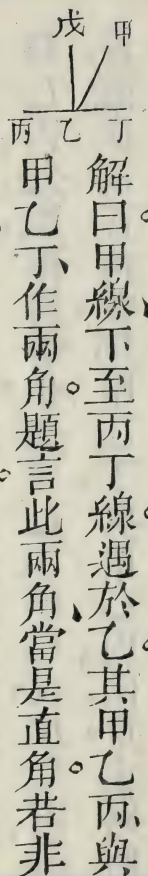 甲
戊
丁
乙
丙
解曰甲線下至丙丁線遇於乙其甲乙丙、與
甲乙丁、作兩角。題言此兩角、當是直角。若非